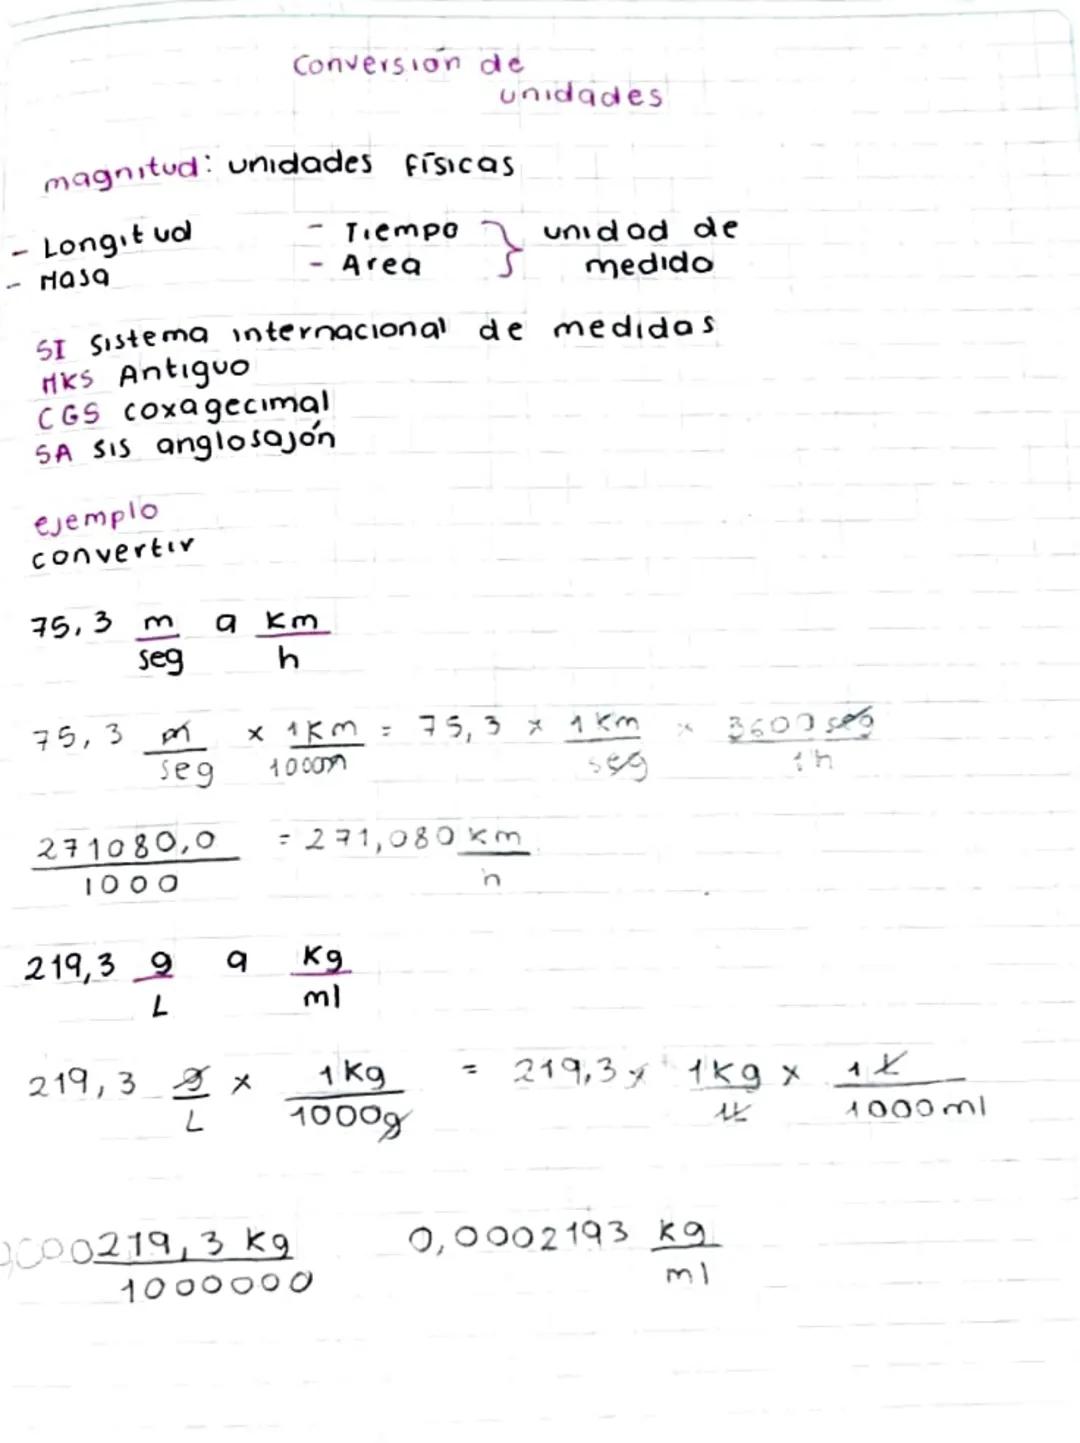 Conversión de
unidades
magnitud: unidades físicas
- Longitud - Tiempo } unidad de
- Masa - Area medida
SI Sistema internacional de medidas
MKS Antiguo
CGS coxagecimal
SA sis anglosajón
ejemplo
convertir
75,3 m/seg a km/h
75,3 m/seg x 1km/1000m = 75,3 x 1km/seg x 3600 seg/1h
271080,0/1000 = 271,080 km/h
219,3 g/L a kg/ml
219,3 g/L x 1kg/1000g = 219,3 x 1kg/1L x 1L/1000ml
0000219,3 kg/1000000 0,0002193 kg/ml